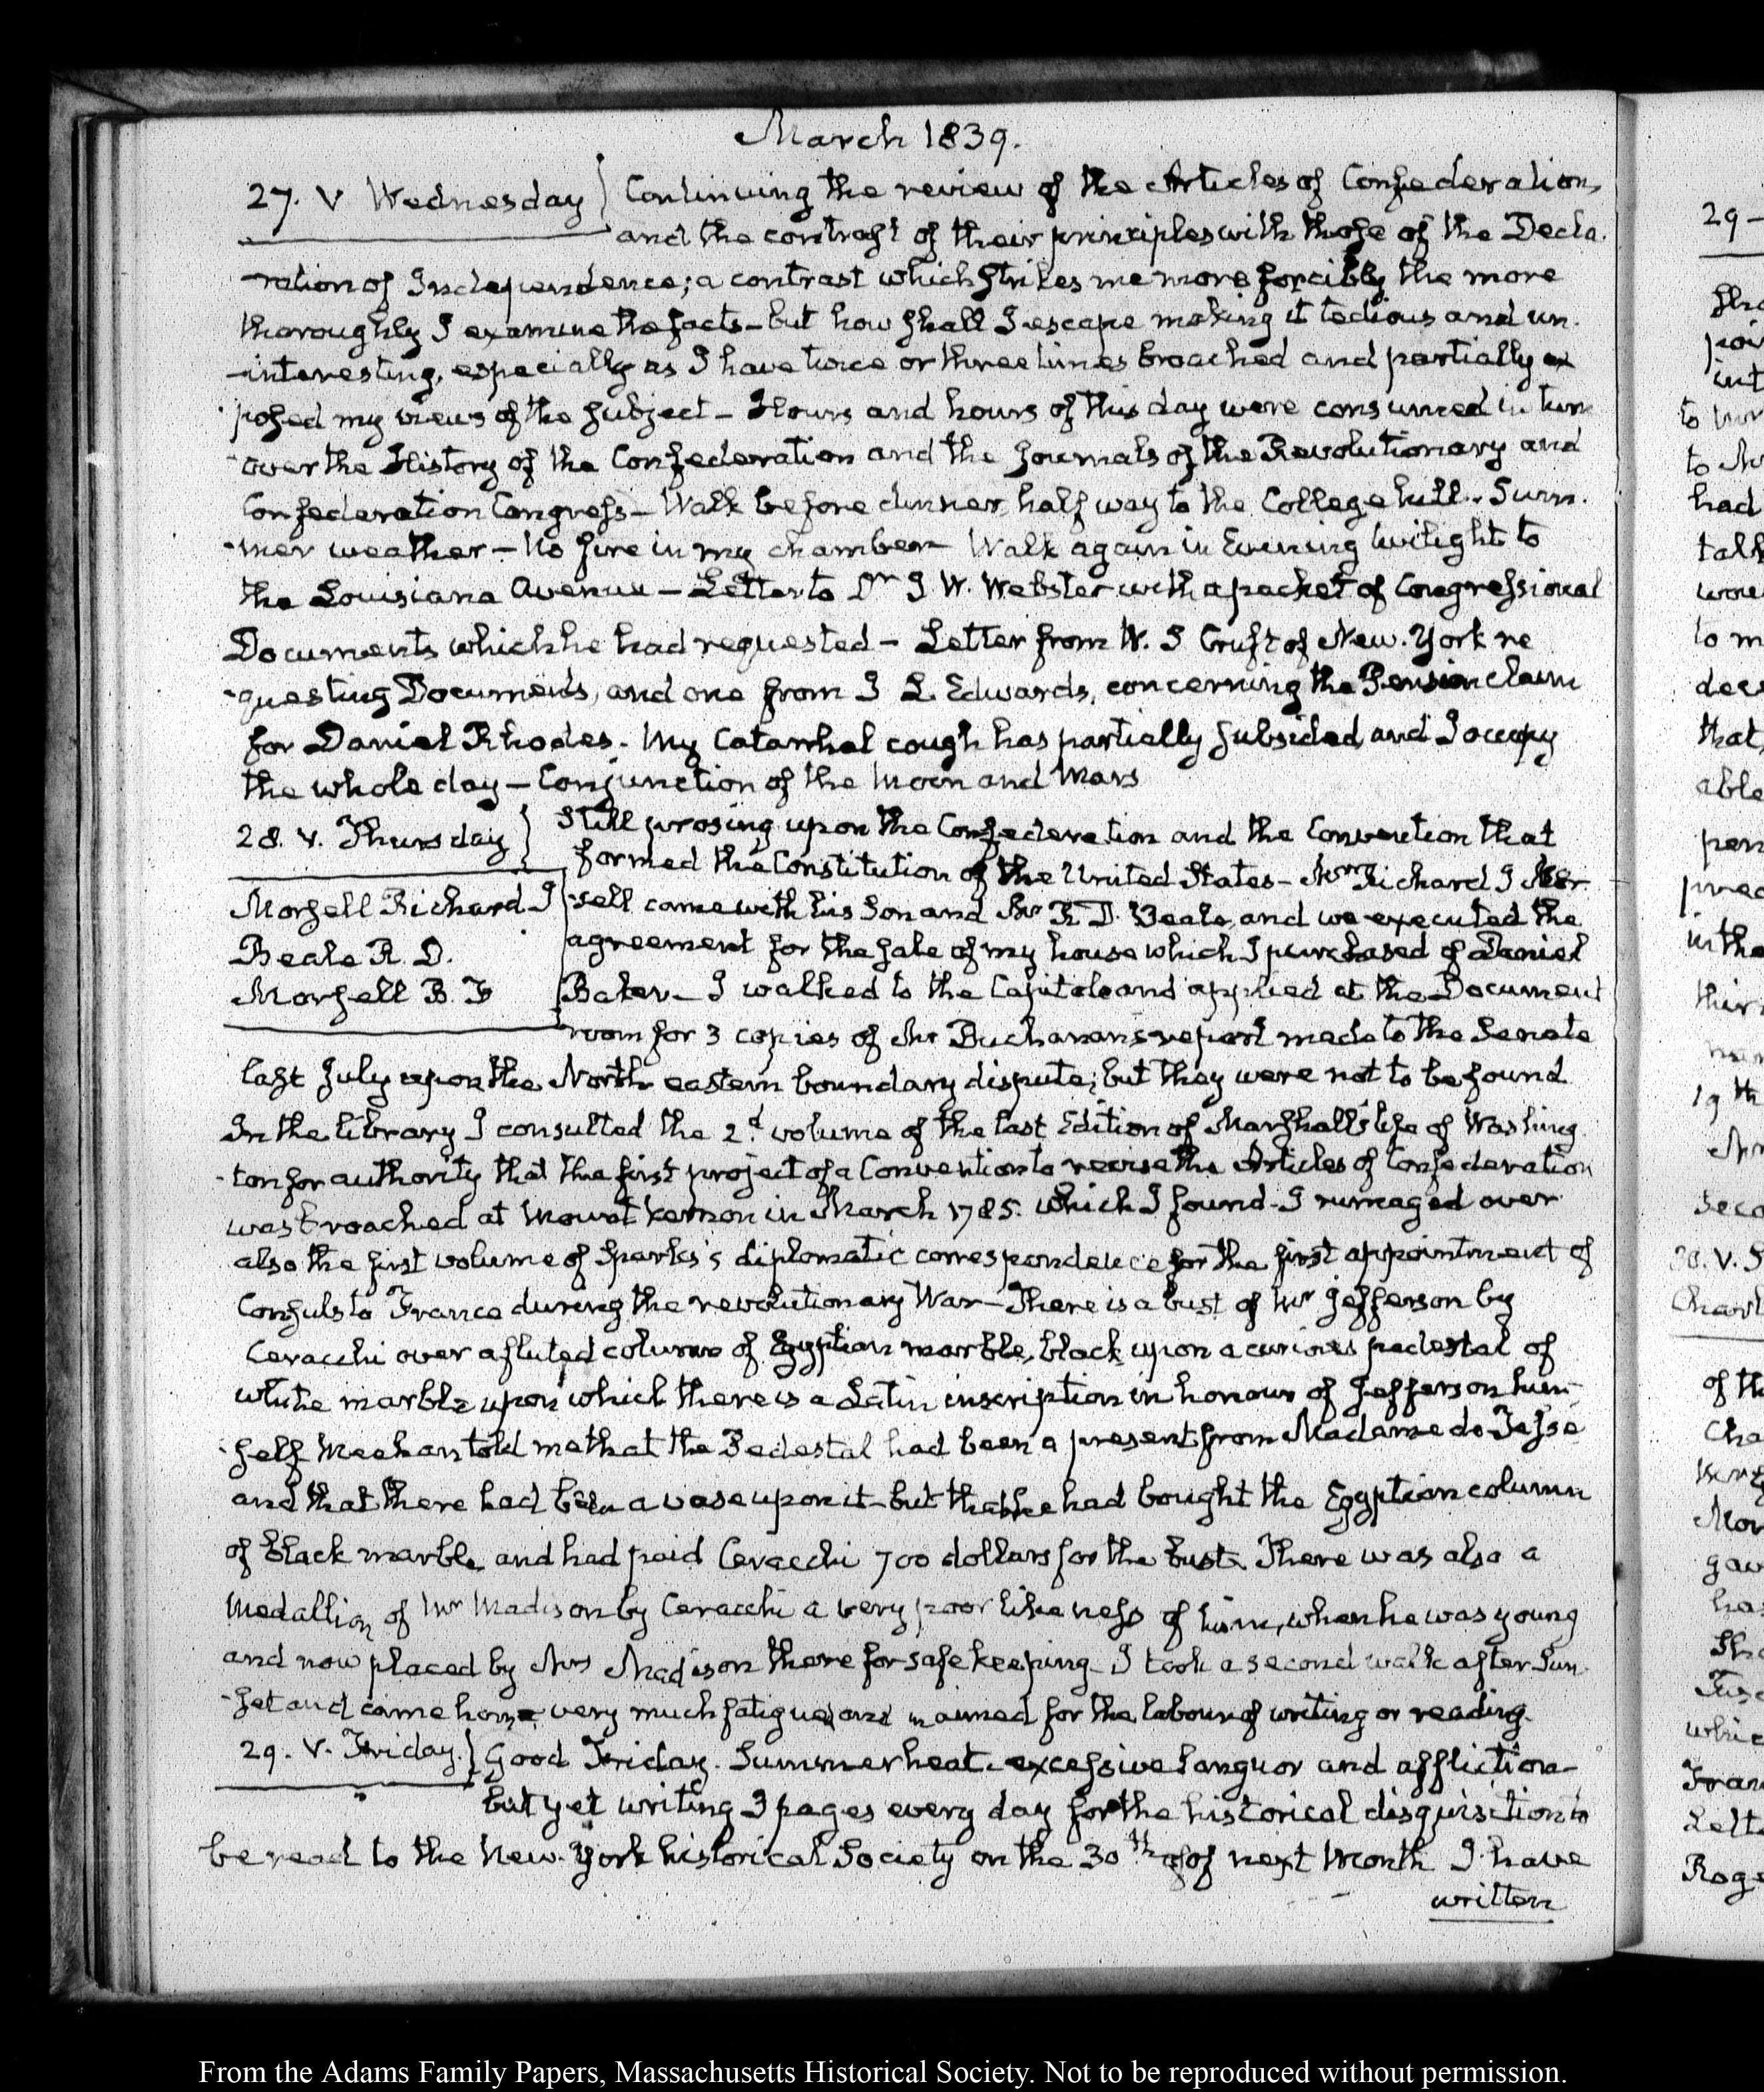 March 1839.
27. V Wednesday } Continuing the review of the Articles of Confederation,
and the contrast of their principles with those of the Decla-
-ration of Independence; a contrast which strikes me more forcibly the more
thoroughly I examine the facts – but how shall I escape making it tedious and un-
-interesting, especially as I have twice or three times broached and partially ex
posed my views of the subject – Hours and hours of this day were consumed in turn
over the History of the Confederation and the Journals of the Revolutionary and
Confederation Congress – Walk before dinner, half way to the College hill. Sum-
-mer weather – No fire in my chamber – Walk again in Evening twilight to
the Louisiana Avenue – Letter to Dr J W. Webster with a packet of Congressional
Documents which he had requested – Letter from W. S Cruft of New-York re
-questing Documents, and one from J L. Edwards, concerning the Pension claim
for Daniel Rhodes. My Catarrhal cough has partially subsided, and I occupy
the whole day – Conjunction of the Moon and Mars
28. V. Thursday } Still prosing upon the Confederation and the Convention that
formed the Constitution of the United States – Mr Richard J Mor-
Morsell Richard J
-sell came with his Son and Mr R D. Beale, and we executed the
Beale R. D.
agreement for the sale of my house which I purchased of Daniel
Morsell B. F
Baker – I walked to the Capitol and applied at the Document
room for 3 copies of Mr Buchanan's report made to the Senate
last July upon the North eastern boundary dispute; but they were not to be found
In the library I consulted the 2d volume of the last Edition of Marshall's life of Washing
-ton for authority that the first project of a Convention to revise the Articles of Confederation
was broached at Mount Vernon in March 1785. which I found – I rumaged over
also the first volume of Sparks's diplomatic correspondence for the first appointment of
Consuls to France during the revolutionary War – There is a bust of Mr Jefferson by
Ceracchi over a fluted column of Egyptian marble, black upon a curious pedestal of
white marble upon which there is a Latin inscription in honour of Jefferson him-
-self Meehan told me that the Pedestal had been a present from Madame de Tessé
and that there had been a vase upon it – but that he had bought the Egyptian column
of black marble, and had paid Ceracchi 700 dollars for the bust. There was also a
Medallion of Mr Madison by Ceracchi a very poor likeness of him, when he was young
and now placed by Mrs Madison there for safe keeping – I took a second walk after Sun-
-set and came home very much fatigued and unarmed for the labour of writing or reading.
29. V. Friday. } Good Friday. Summer heat – excessive languor and affliction –
but yet writing 3 pages every day for the historical disquisition to
be read to the New-York historical Society on the 30th of next Month I have
written
29 –
had
to m
that,
able
in the
19 th
of th
Cha
From the Adams Family Papers, Massachusetts Historical Society. Not to be reproduced without permission.